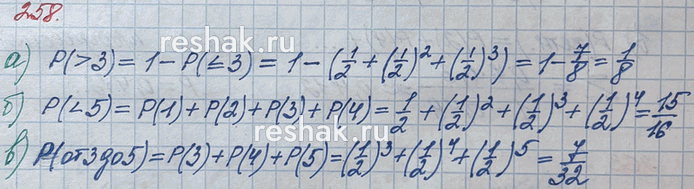 258.
reshak.ru
а) P(>3) = 1 - P(≤3) = 1 - (1/2 + (1/2)² + (1/2)³) = 1 - 7/8 = 1/8
б) P(<5) = P(1) + P(2) + P(3) + P(4) = 1/2 + (1/2)² + (1/2)³ + (1/2)⁴ = 15/16
reshak.ru
в) P(от 3 до 5) = P(3) + P(4) + P(5) = (1/2)³ + (1/2)⁴ + (1/2)⁵ = 7/32